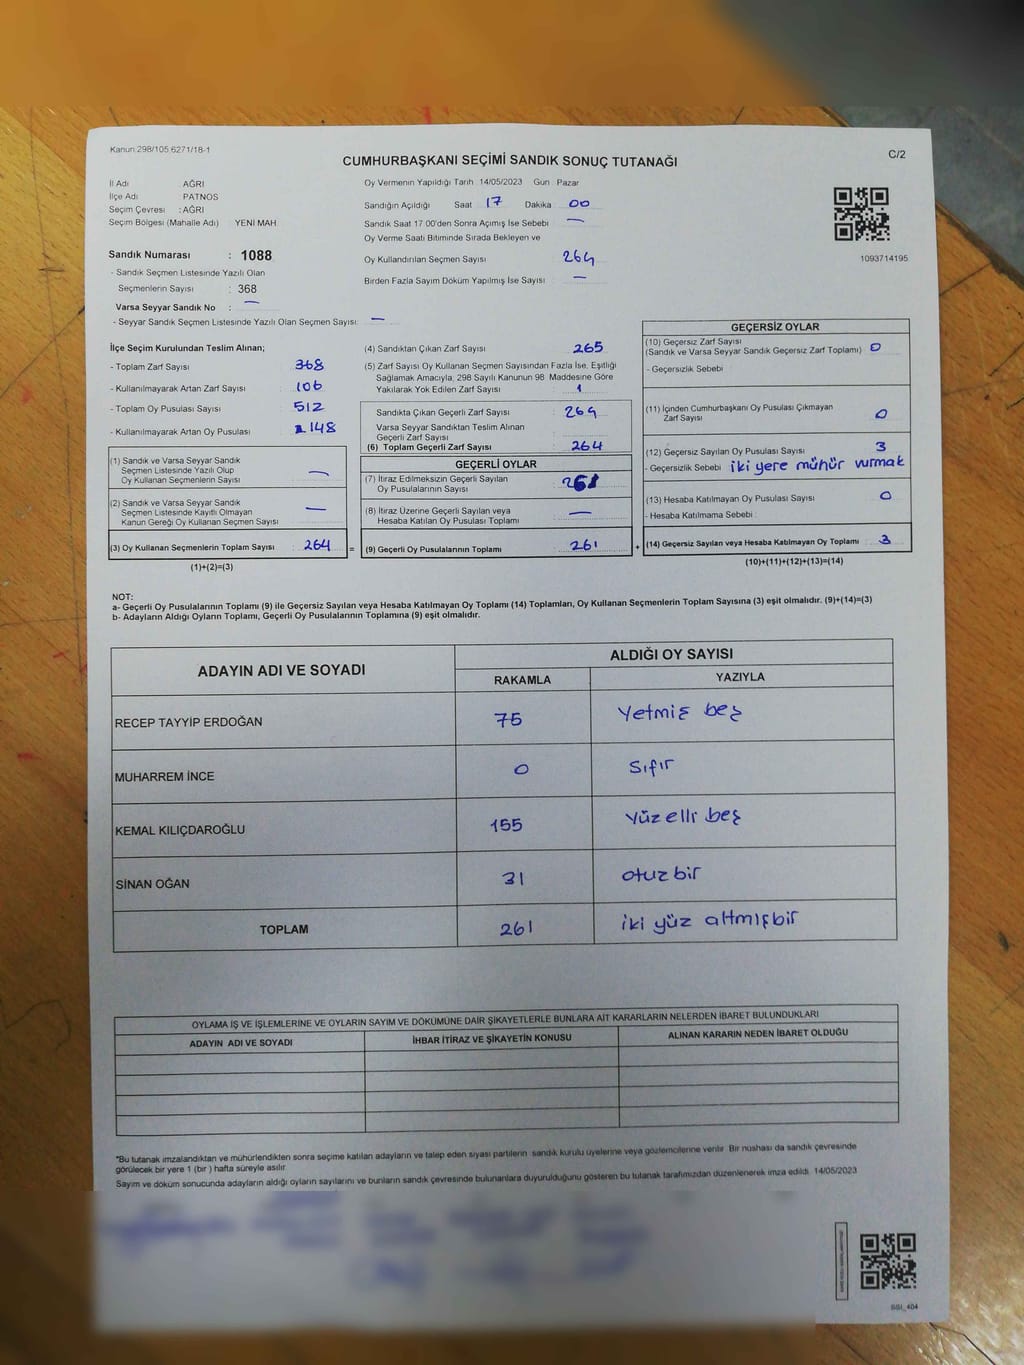 Kanun 298/105 6271/18-1
CUMHURBAŞKANI SEÇİMİ SANDIK SONUÇ TUTANAĞI
C/2
İl Adı : AĞRI
İlçe Adı PATNOS
Seçim Çevresi : AĞRI
Seçim Bölgesi (Mahalle Adı) YENİ MAH
Oy Vermenin Yapıldığı Tarih 14/05/2023 Gün Pazar
Sandığın Açıldığı Saat 17 Dakika 00
Sandık Saat 17 00'den Sonra Açımış İse Sebebi —
Oy Verme Saati Bitiminde Sırada Bekleyen ve
Oy Kullandırılan Seçmen Sayısı 264
Birden Fazla Sayım Döküm Yapılmış İse Sayısı —
1093714195
Sandık Numarası : 1088
- Sandık Seçmen Listesinde Yazılı Olan
Seçmenlerin Sayısı : 368
Varsa Seyyar Sandık No : —
- Seyyar Sandık Seçmen Listesinde Yazılı Olan Seçmen Sayısı: —
İlçe Seçim Kurulundan Teslim Alınan;
- Toplam Zarf Sayısı 368
- Kullanılmayarak Artan Zarf Sayısı 106
- Toplam Oy Pusulası Sayısı 512
- Kullanılmayarak Artan Oy Pusulası 148
(1) Sandık ve Varsa Seyyar Sandık
Seçmen Listesinde Yazılı Olup
Oy Kullanan Seçmenlerin Sayısı —
(2) Sandık ve Varsa Seyyar Sandık
Seçmen Listesinde Kayıtlı Olmayan
Kanun Gereği Oy Kullanan Seçmen Sayısı —
(3) Oy Kullanan Seçmenlerin Toplam Sayısı : 264 =
(1)+(2)=(3)
(4) Sandıktan Çıkan Zarf Sayısı 265
(5) Zarf Sayısı Oy Kullanan Seçmen Sayısından Fazla İse, Eşitliği
Sağlamak Amacıyla, 298 Sayılı Kanunun 98 Maddesine Göre
Yakılarak Yok Edilen Zarf Sayısı 1
Sandıkta Çıkan Geçerli Zarf Sayısı : 264
Varsa Seyyar Sandıktan Teslim Alınan
Geçerli Zarf Sayısı
(6) Toplam Geçerli Zarf Sayısı 264
GEÇERLİ OYLAR
(7) İtiraz Edilmeksizin Geçerli Sayılan
Oy Pusulalarının Sayısı 261
(8) İtiraz Üzerine Geçerli Sayılan veya
Hesaba Katılan Oy Pusulası Toplamı —
(9) Geçerli Oy Pusulalarının Toplamı 261 +
GEÇERSİZ OYLAR
(10) Geçersiz Zarf Sayısı
(Sandık ve Varsa Seyyar Sandık Geçersiz Zarf Toplamı) 0
- Geçersizlik Sebebi
(11) İçinden Cumhurbaşkanı Oy Pusulası Çıkmayan
Zarf Sayısı 0
(12) Geçersiz Sayılan Oy Pusulası Sayısı 3
- Geçersizlik Sebebi iki yere mühür vurmak
(13) Hesaba Katılmayan Oy Pusulası Sayısı 0
- Hesaba Katılmama Sebebi :
(14) Geçersiz Sayılan veya Hesaba Katılmayan Oy Toplamı 3
(10)+(11)+(12)+(13)=(14)
NOT:
a- Geçerli Oy Pusulalarının Toplamı (9) ile Geçersiz Sayılan veya Hesaba Katılmayan Oy Toplamı (14) Toplamları, Oy Kullanan Seçmenlerin Toplam Sayısına (3) eşit olmalıdır. (9)+(14)=(3)
b- Adayların Aldığı Oyların Toplamı, Geçerli Oy Pusulalarının Toplamına (9) eşit olmalıdır.
ADAYIN ADI VE SOYADI ALDIĞI OY SAYISI
RAKAMLA YAZIYLA
RECEP TAYYİP ERDOĞAN 75 Yetmiş beş
MUHARREM İNCE 0 Sıfır
KEMAL KILIÇDAROĞLU 155 Yüz elli beş
SİNAN OĞAN 31 otuz bir
TOPLAM 261 iki yüz altmışbir
OYLAMA İŞ VE İŞLEMLERİNE VE OYLARIN SAYIM VE DÖKÜMÜNE DAİR ŞİKAYETLERLE BUNLARA AİT KARARLARIN NELERDEN İBARET BULUNDUKLARI
ADAYIN ADI VE SOYADI İHBAR İTİRAZ VE ŞİKAYETİN KONUSU ALINAN KARARIN NEDEN İBARET OLDUĞU
*Bu tutanak imzalandıktan ve mühürlendikten sonra seçime katılan adayların ve talep eden siyasi partilerin sandık kurulu üyelerine veya gözlemcilerine verilir. Bir nüshası da sandık çevresinde
görülecek bir yere 1 (bir) hafta süreyle asılır.
Sayım ve döküm sonucunda adayların aldığı oyların sayılarını ve bunların sandık çevresinde bulunanlara duyurulduğunu gösteren bu tutanak tarafımızdan düzenlenerek imza edildi. 14/05/2023
SSI_404